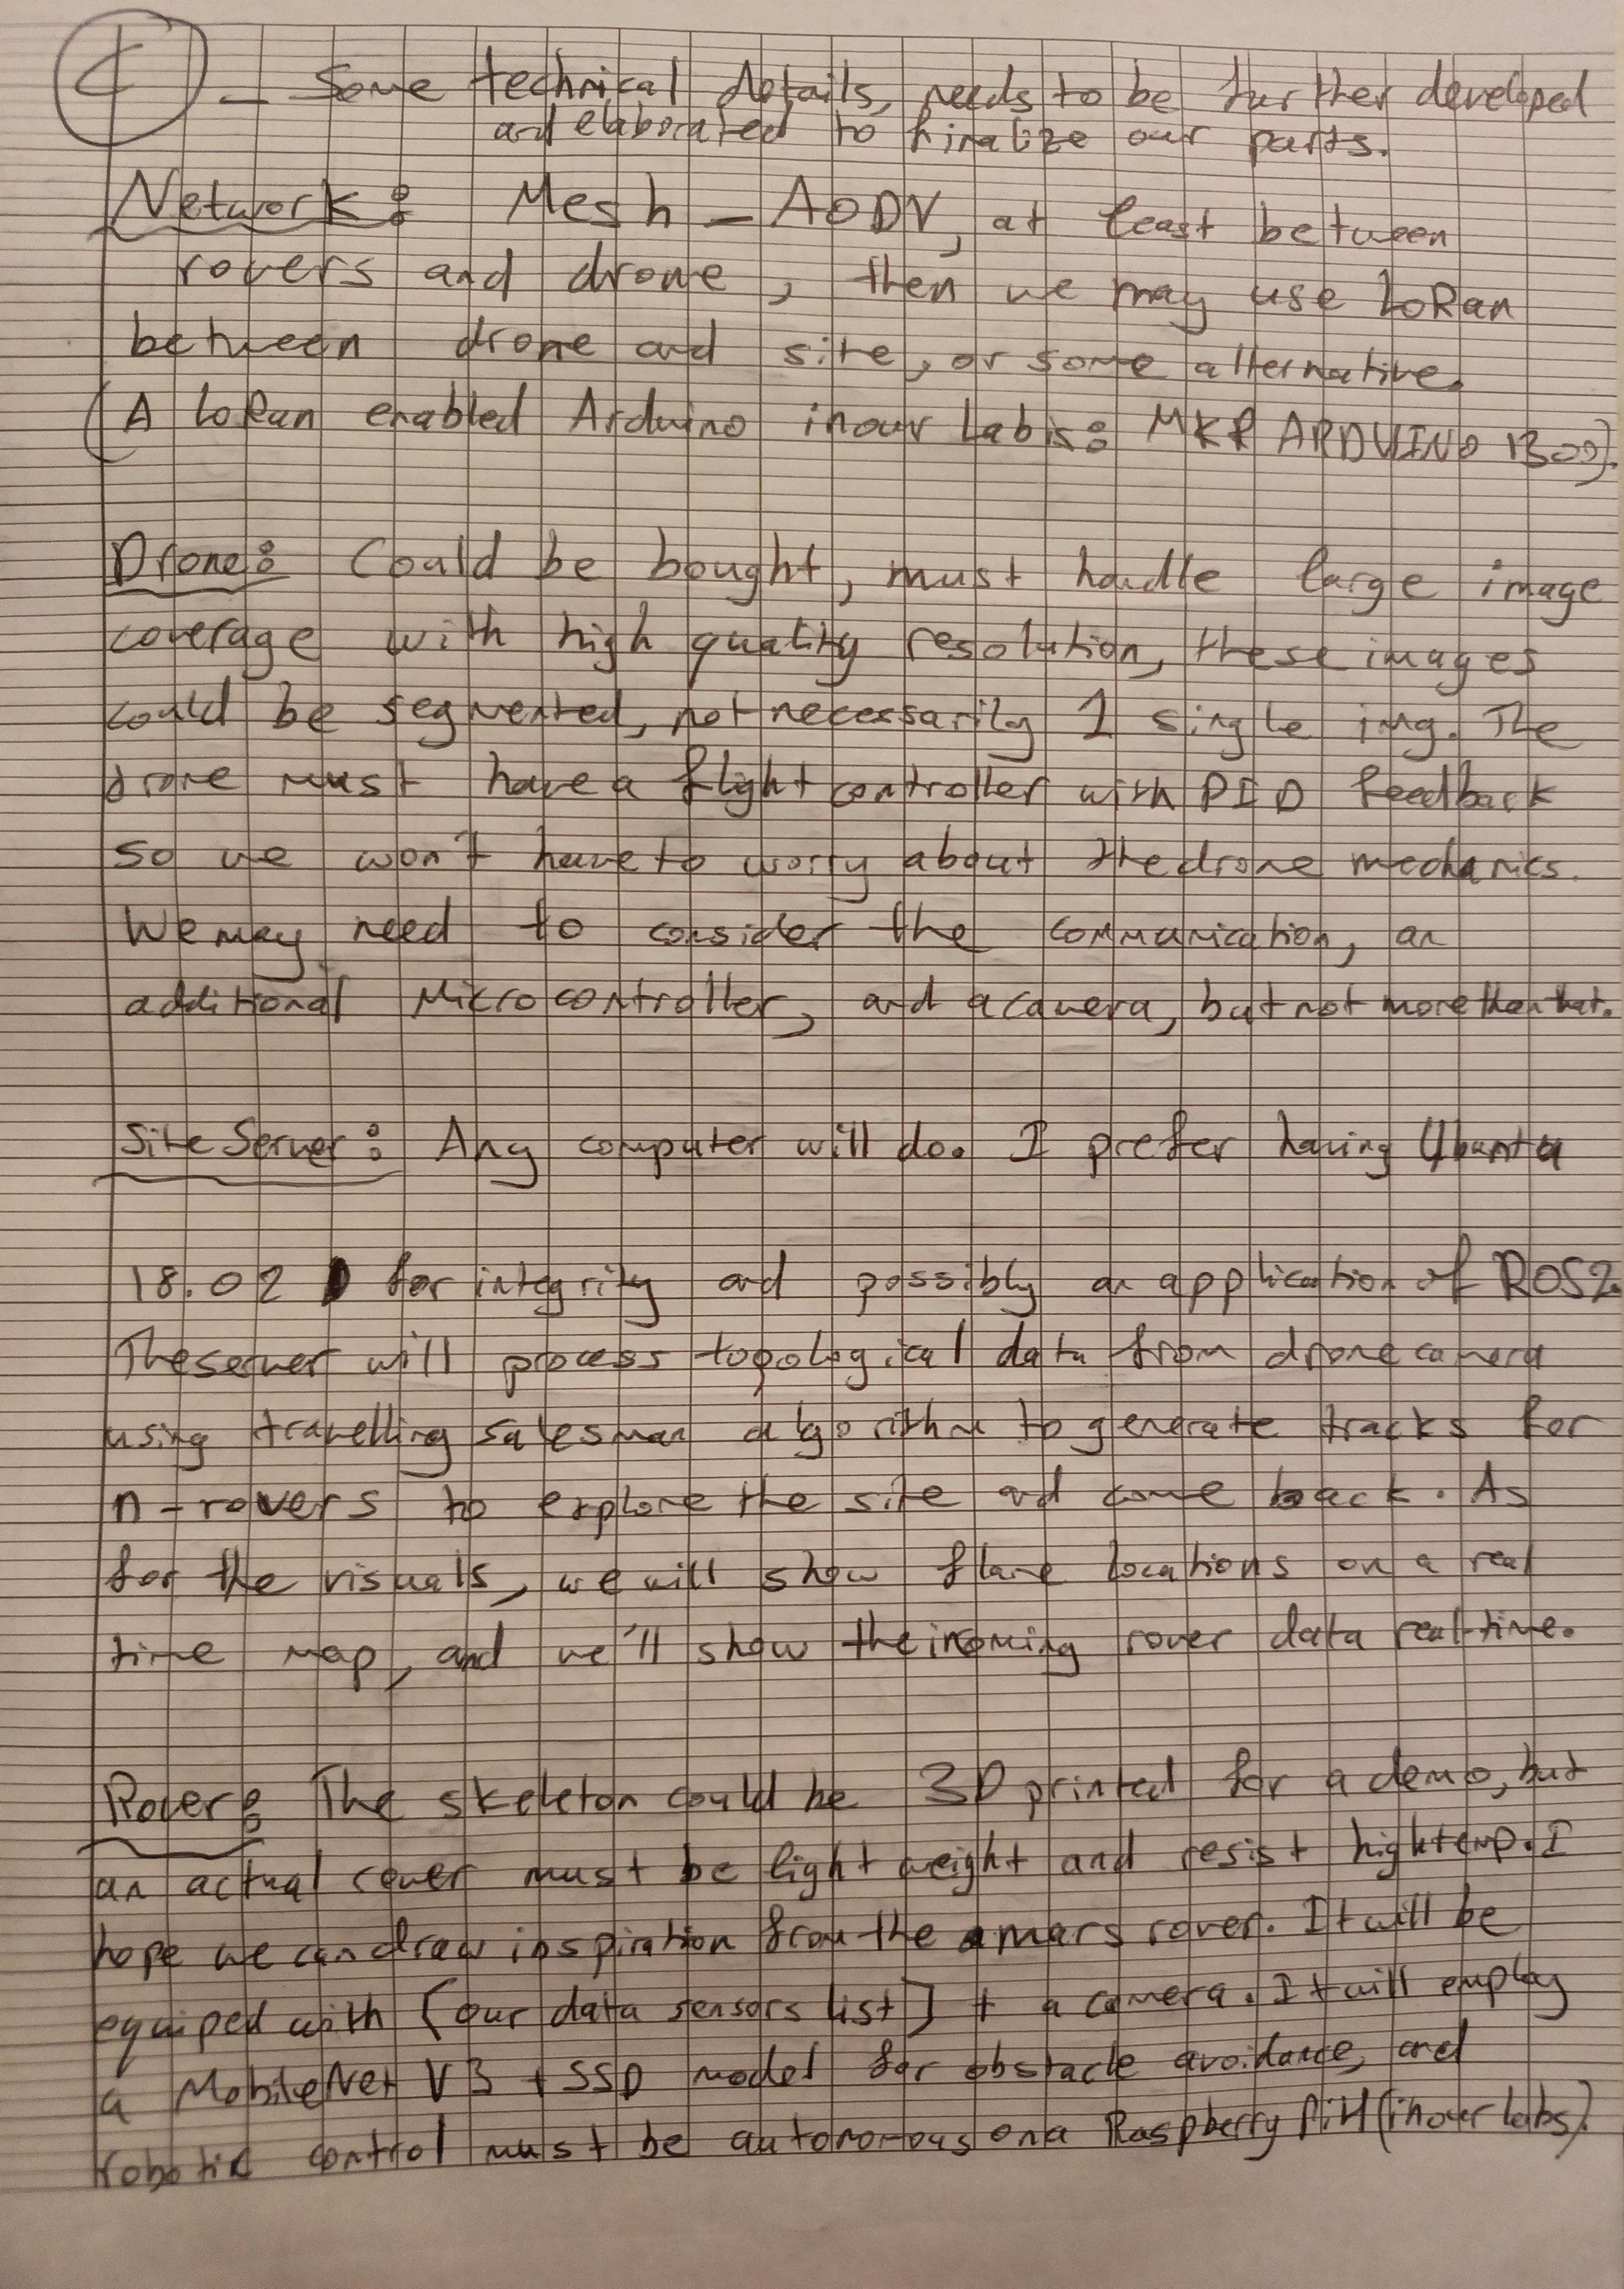 4 - Some technical details, needs to be further developed
and elaborated to finalize our parts.
Network: Mesh - AODV, at least between
rovers and drone, then we may use LoRan
between drone and site, or some alternative.
(A LoRan enabled Arduino in our Lab is: MKR ARDUINO 1300).
Drone: Could be bought, must handle large image
coverage with high quality resolution, these images
could be segmented, not necessarily 1 single img. The
drone must have a flight controller with PID feedback
so we won't have to worry about the drone mechanics.
We may need to consider the communication, an
additional Microcontroller, and a camera, but not more than that.
Site Server: Any computer will do. I prefer having Ubuntu
18.02 for integrity and possibly an application of ROS2.
The server will process topological data from drone camera
using travelling salesman algorithm to generate tracks for
n-rovers to explore the site and come back. As
for the visuals, we will show flare locations on a real
time map, and we'll show the incoming rover data real-time.
Rover: The skeleton could be 3D printed for a demo, but
an actual rover must be light weight and resist high temp. I
hope we can draw inspiration from the mars rover. It will be
equiped with [our data sensors list] + a camera. It will employ
a MobileNet V3 + SSD model for obstacle avoidance, and
robotic control must be autonomous on a Raspberry Pi 4 (in our labs).